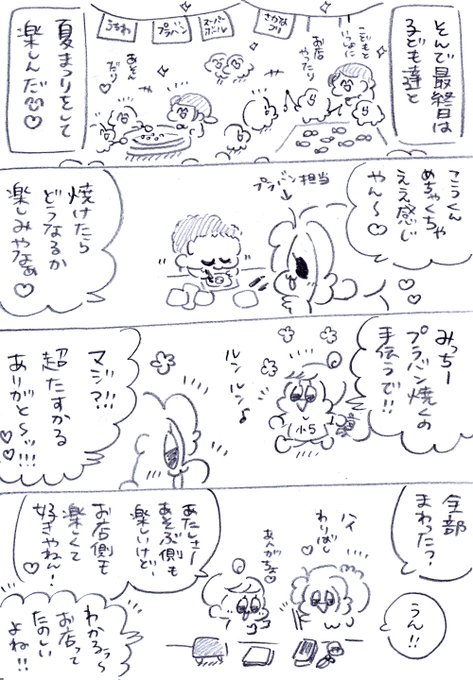 そんで最終日は
子ども達と
夏まつりをして
楽しんだ♡
さかな
つり
スーパー
ボール
プラバン
うちわ
こどもと
いっしょに
お店
やったり
あそん
だり♡
こうくん
めちゃくちゃ
ええ感じ
やん〜♡
プラバン担当
焼けたら
どうなるか
楽しみやなぁ♡
みっちー
プラバン焼くの
手伝うで!!
小5
ルンルン♪
マジ?!!
超たすかる
ありがと〜ッ!!!
全部
まわった?
うん!!
ハイ
わりばし
あんがちょ♡
あたしさー
あそぶ側も
楽しいけど
お店側も
楽しくて
好きやねん!
わかるぅ〜
お店って
たのしい
よね!!